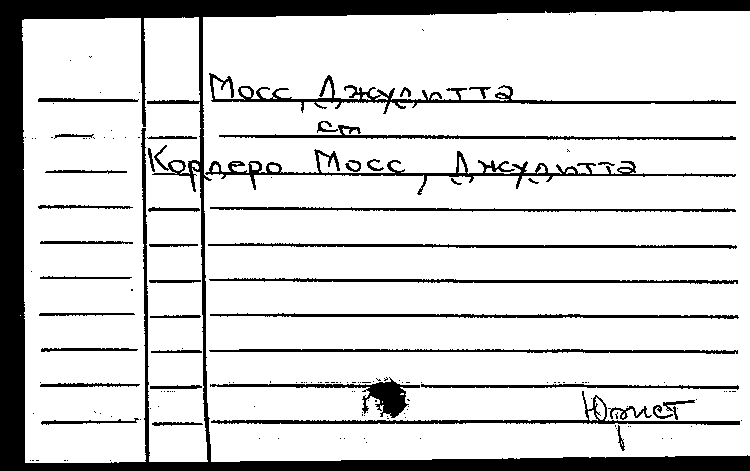 Мосс, Джудитта
см
Кордеро Мосс, Джудитта
Юрист